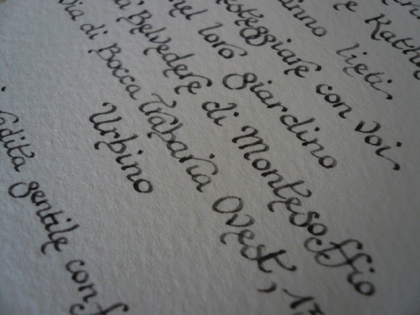 e Katth
anno lieti
festeggiare con voi,
nel loro giardino
Belvedere di Montesoffio
Via di Bocca Trabaria Ovest, 13
Urbino
gradita gentile conf